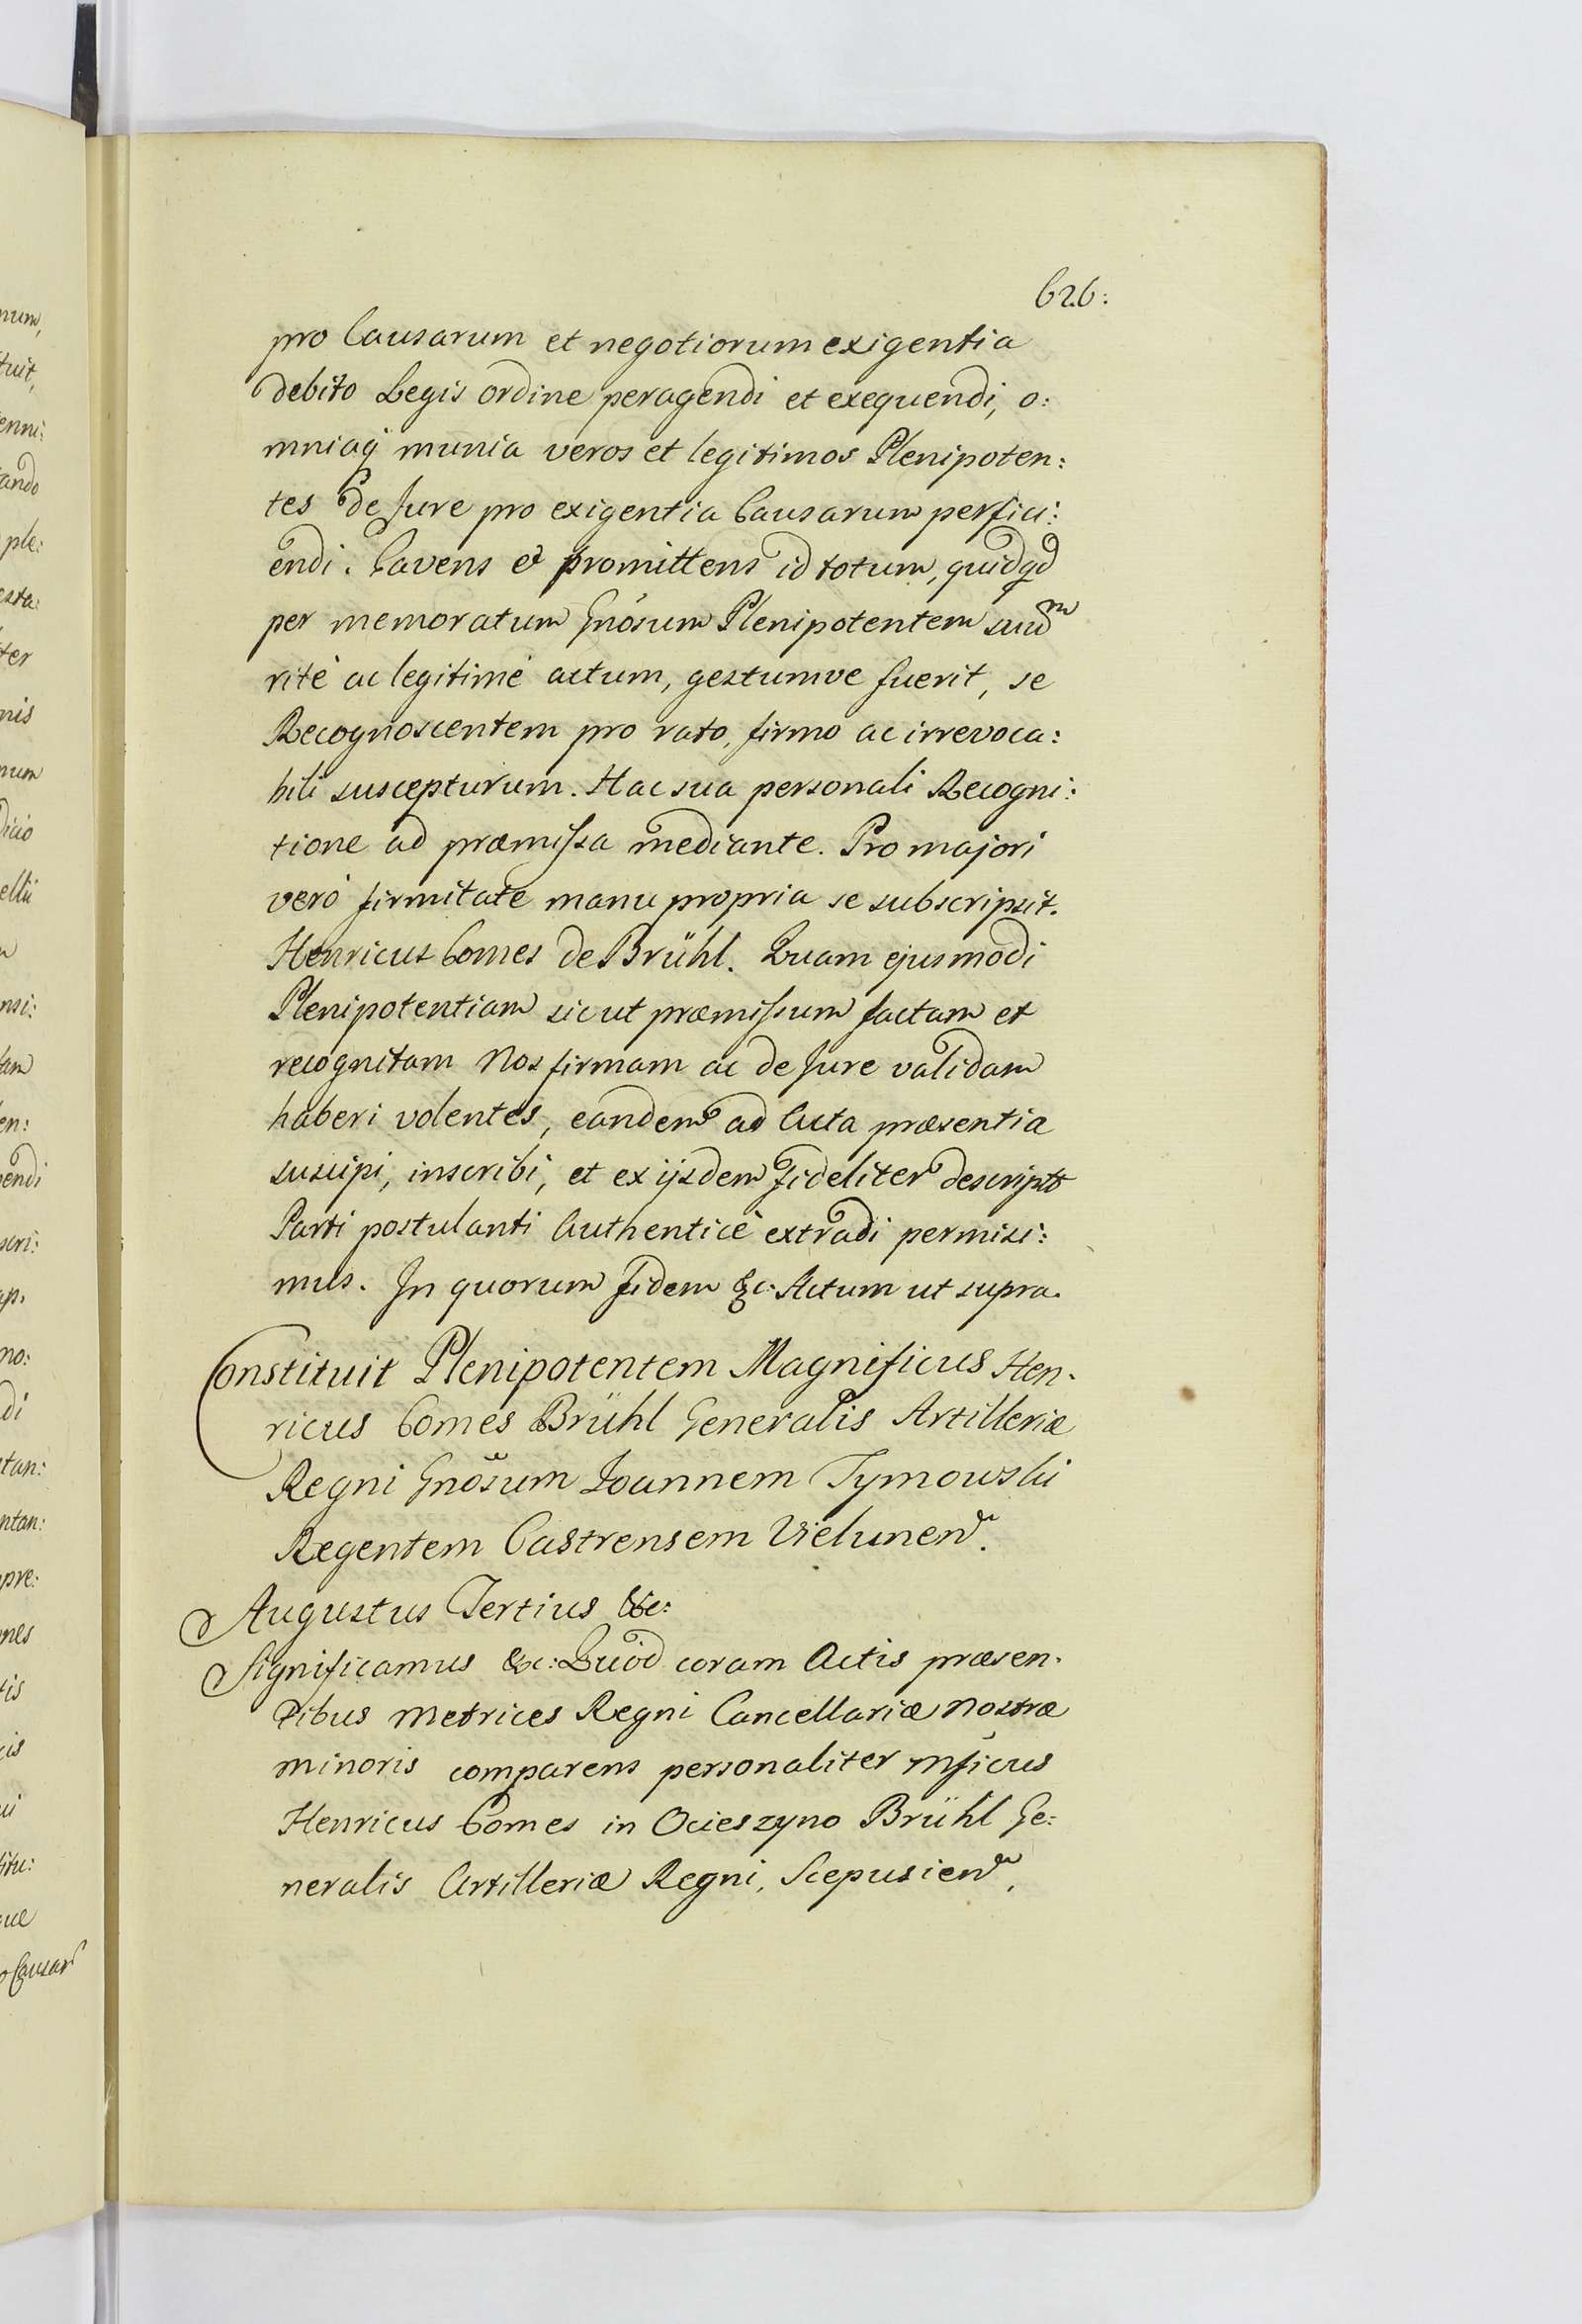 626:
pro Causarum et negotiorum exigentia
debito Legis ordine peragendi et exequendi, o:
mniaq́ munia veros et legitimos Plenipoten:
tes de Jure pro exigentia Causarum perfici:
endi. Cavens et promittens id totum, quidqd
per memoratum Gnosum Plenipotentem suum
ritè ac legitimè actum, gestumve fuerit, se
Recognoscentem pro rato, firmo ac irrevoca:
bili suscepturum. Hac sua personali Recogni:
tione ad præmissa mediante. Pro majori
verò firmitate manu propria se subscripsit.
Henricus Comes de Brühl. Quam ejusmodi
Plenipotentiam sicut præmissum factam et
recognitam Nos firmam ac de Jure validam
haberi volentes, eandem ad Acta præsentia
suscipi, inscribi, et ex ijsdem fideliter descripto
Parti postulanti Authenticè extradi permisi:
mus. In quorum fidem &c: Actum ut supra.
Constituit Plenipotentem Magnificus Hen.
ricus Comes Brühl Generalis Artilleriæ
Regni Gnosum Ioannem Tymowski
Regentem Castrensem Vielunen.
Augustus Tertius &c:
Significamus &c: Quod coram Actis præsen.
tibus Metrices Regni Cancellariæ Nostræ
minoris comparens personaliter Mficus
Henricus Comes in Ocieszyno Brühl Ge:
neralis Artilleriæ Regni, Scepusien,